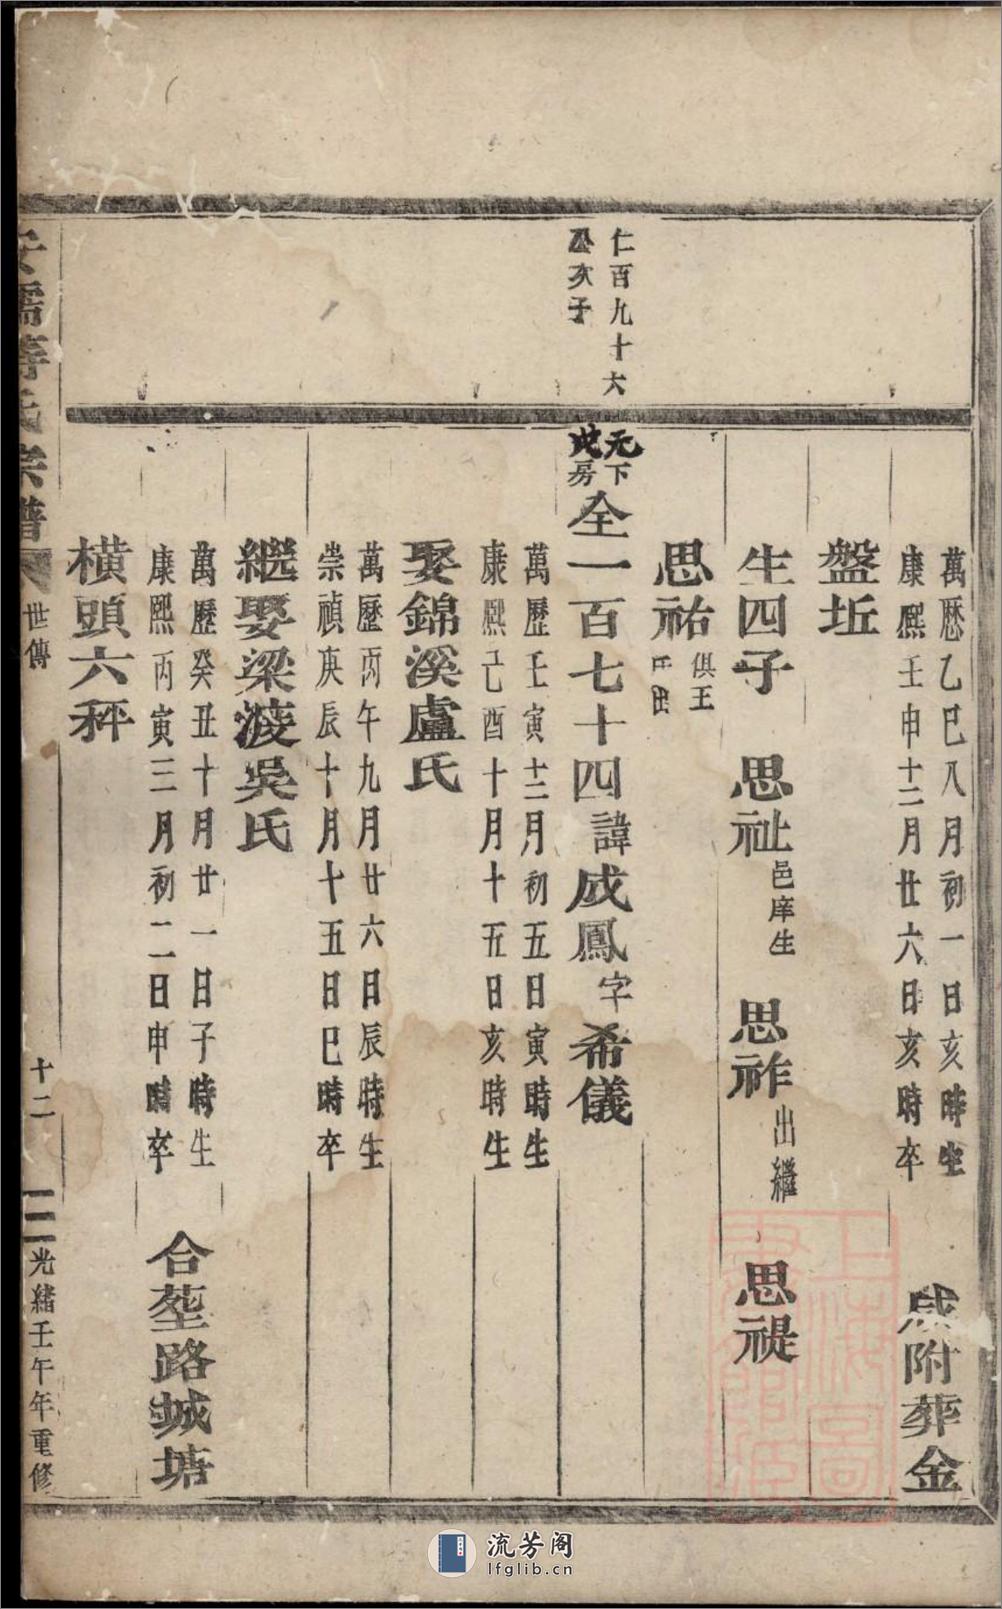 萬厯乙巳八月初一日亥時生
康熙壬申十二月廿六日亥時卒
咸附葬金
盤坵
生四子 思祉 邑庠生 思祚 出繼 思禔
思祐 俱王氏出
仁百九十六
公次子
元下
此房
全一百七十四諱成鳳字希儀
萬歷壬寅十二月初五日寅時生
康熙己酉十月十五日亥時生
娶錦溪盧氏
萬歷丙午九月廿六日辰時生
崇禎庚辰十月十五日巳時卒
繼娶梁淩吳氏
萬歷癸丑十月廿一日子時生
康熙丙寅三月初二日申時卒
合塟路城塘
橫頭六秤
氏宗譜
世傳
十二
光緒壬午年重修
上海圖
流芳阁
lfglib.cn